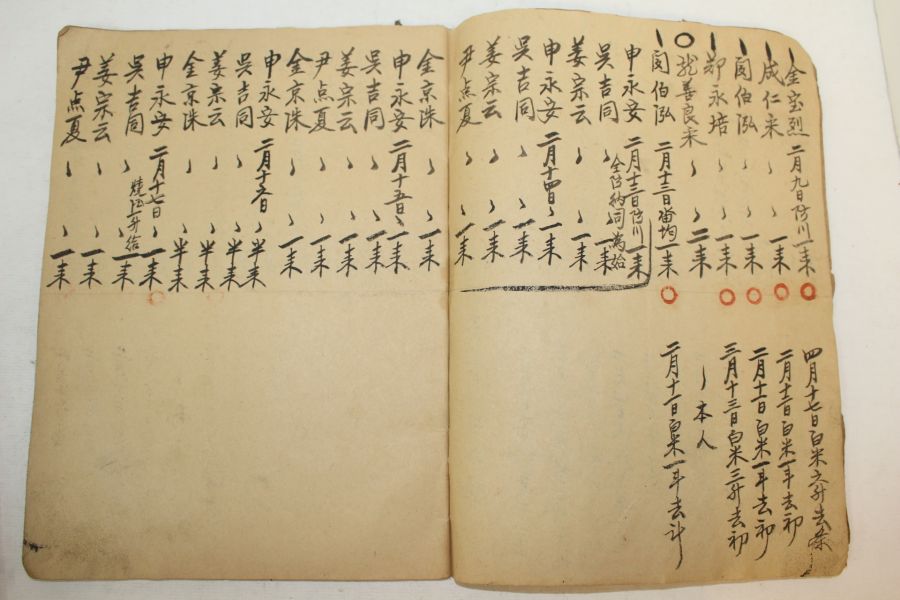 金宝烈 二月九日防川一来 四月十七日白米六升去
成仁宋 〻 一来 二月十二日白米一斗去初
閔伯泓 〻 一来 二月十二日白米一斗去初
鄭永培 〻 一来 三月十三日白米三升去初
善良宋 〻 二来 〻本人
閔伯泓 二月十三日畓均一来 二月十二日白米一斗去
申永安 二月十三日防川一来
全防納司為始
吳吉同 〻 一来
姜宗云 〻 一来
申永安 二月十四日 一来
吳吉同 〻 一来
姜宗云 〻 一来
尹点夏 〻 一来
金京洙 〻 一来
申永安 二月十五日 一来
吳吉同 〻 一来
姜宗云 〻 一来
尹点夏 〻 一来
金京洙 〻 一来
申永安 二月十六日 半来
吳吉同 〻 半来
姜宗云 〻 半来
金京洙 〻 半来
申永安 二月十七日 一来
吳吉同 〻 一来
燒酒一升給
姜宗云 〻 一来
尹点夏 〻 一来